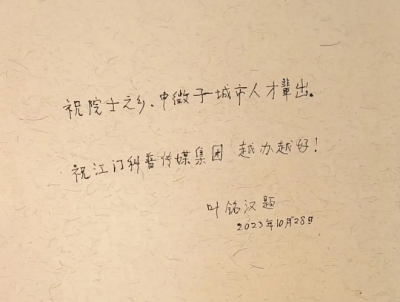 祝院士之乡、中微子城市人才辈出。
祝江门科普传媒集团 越办越好！
叶铭汉题
2023年10月28日